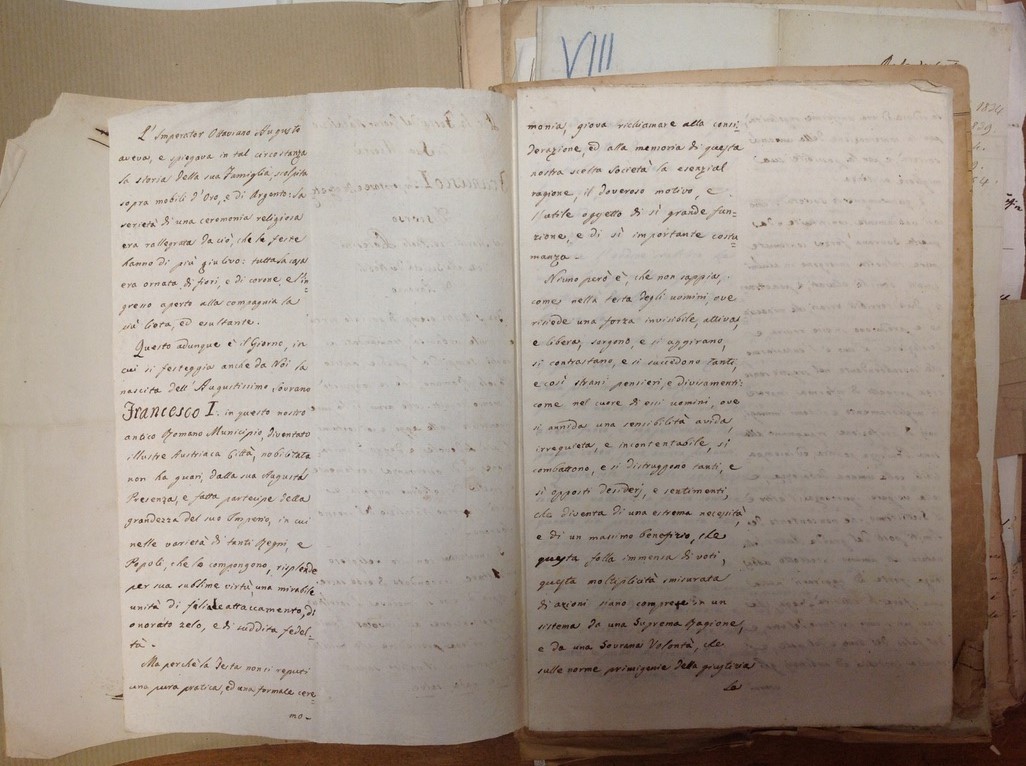 L'Imperator Ottaviano Augusto
aveva, e spiegava in tal circostanza
la storia della sua Famiglia, scolpita
sopra mobili d'Oro, e di Argento: la
serietà di una ceremonia religiosa
era rallegrata da ciò, che le feste
hanno di più giulivo: tutta la casa
era ornata di fiori, e di corone e l'in=
gresso aperto alla compagnia la
più lieta, ed esultante.
Questo adunque è il Giorno, in
cui si festeggia anche da Noi la
nascita dell'Augustissimo Sovrano
Francesco I. in questo nostro
antico Romano Municipio, diventato
illustre Austriaca Città, nobilitata
non ha guari, dalla sua Augusta
Presenza, e fatta partecipe della
grandezza del suo Imperio, in cui
nelle varietà di tanti Regni, e
Popoli, che lo compongono, risplende
per sua sublime virtù una mirabile
unità di filiale attaccamento, di
onorato zelo, e di suddita fedel=
tà.
Ma perchè la Festa non si reputi
una pura pratica, ed una formale cere
mo=
monia, giova richiamare alla consi=
derazione, ed alla memoria di questa
nostra scolta Società la esenzial
ragione, il doveroso motivo, e
l'utile oggetto di sì grande fun=
zione, e di sì importante costu=
manza.
Niuno però è, che non sappia,
come nella testa degli uomini, ove
risiede una forza invisibile, attiva,
e libera, sorgono, e si aggirano,
si contrastano, e si succedono tanti,
e così strani pensieri, e divisamenti:
come nel cuore di essi uomini, ove
si annida una sensibilità avida,
irrequieta, e incontentabile, si
combattono, e si distruggono tanti, e
sì opposti desiderj, e sentimenti,
che diventa di una estrema necessità,
e di un massimo benefizio, che
questa folla immensa di voti,
questa moltiplicità smisurata
di azioni siano comprese in un
sistema da una Suprema Ragione,
e da una Sovrana Volontà, che
sulle norme primigenie della giustizia
la
VIII
1834